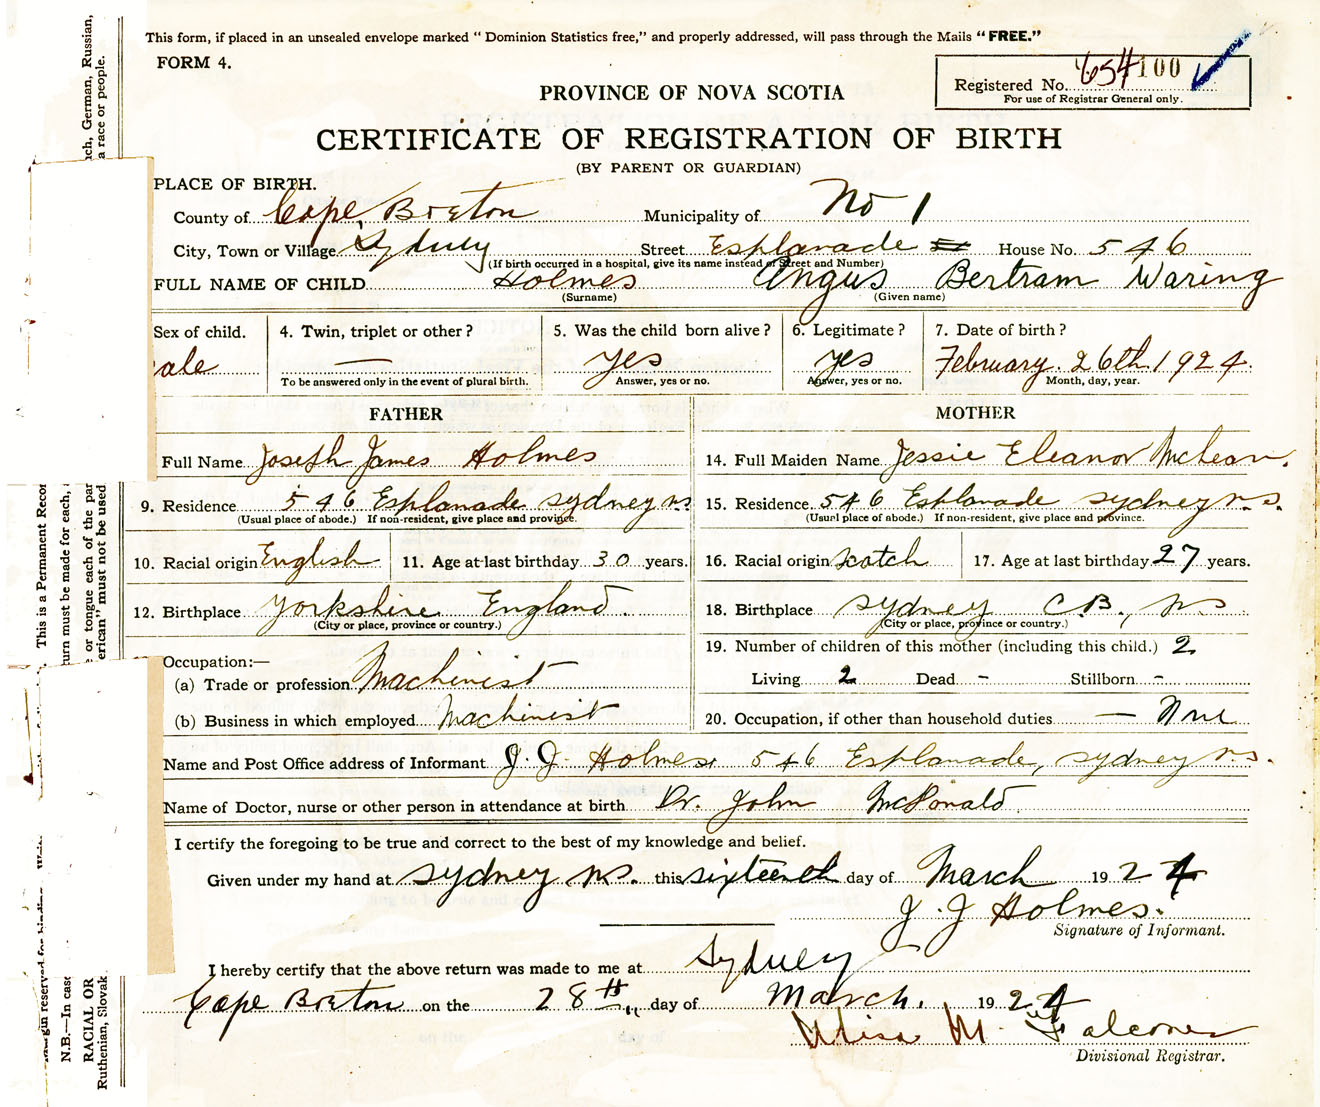 This form, if placed in an unsealed envelope marked “ Dominion Statistics free,” and properly addressed, will pass through the Mails “FREE.”
FORM 4.
Registered No. 654 100
For use of Registrar General only.
PROVINCE OF NOVA SCOTIA
CERTIFICATE OF REGISTRATION OF BIRTH
(BY PARENT OR GUARDIAN)
PLACE OF BIRTH.
County of Cape Breton Municipality of No 1
City, Town or Village Sydney Street Esplanade House No. 546
(If birth occurred in a hospital, give its name instead of Street and Number)
FULL NAME OF CHILD Holmes Angus Bertram Waring
(Surname) (Given name)
Sex of child. 4. Twin, triplet or other? 5. Was the child born alive? 6. Legitimate? 7. Date of birth?
ale — yes yes February. 26th. 1924.
To be answered only in the event of plural birth. Answer, yes or no. Answer, yes or no. Month, day, year.
FATHER MOTHER
Full Name Joseph James Holmes 14. Full Maiden Name Jessie Eleanor McLean.
9. Residence 546 Esplanade Sydney N.S. 15. Residence. 546 Esplanade Sydney N.S.
(Usual place of abode.) If non-resident, give place and province. (Usual place of abode.) If non-resident, give place and province.
10. Racial origin English 11. Age at last birthday 30 years. 16. Racial origin Scotch 17. Age at last birthday 27 years.
12. Birthplace Yorkshire England. 18. Birthplace Sydney C.B., NS
(City or place, province or country.) (City or place, province or country.)
19. Number of children of this mother (including this child.) 2
Occupation:—
(a) Trade or profession Machinist Living 2 Dead - Stillborn -
(b) Business in which employed Machinist 20. Occupation, if other than household duties — None
Name and Post Office address of Informant J. J. Holmes. 546 Esplanade, Sydney N.S.
Name of Doctor, nurse or other person in attendance at birth Dr. John McDonald
I certify the foregoing to be true and correct to the best of my knowledge and belief.
Given under my hand at Sydney N.S. this sixteenth day of March 1924
J. J Holmes.
Signature of Informant.
I hereby certify that the above return was made to me at Sydney
Cape Breton on the 28th day of March. 1924
Miss M. Falconer
Divisional Registrar.
uch, German, Russian,
a race or people.
This is a Permanent Recor
turn must be made for each,
e or tongue each of the par
erican" must not be used
N.B.—In case
RACIAL OR
Ruthenian, Slovak